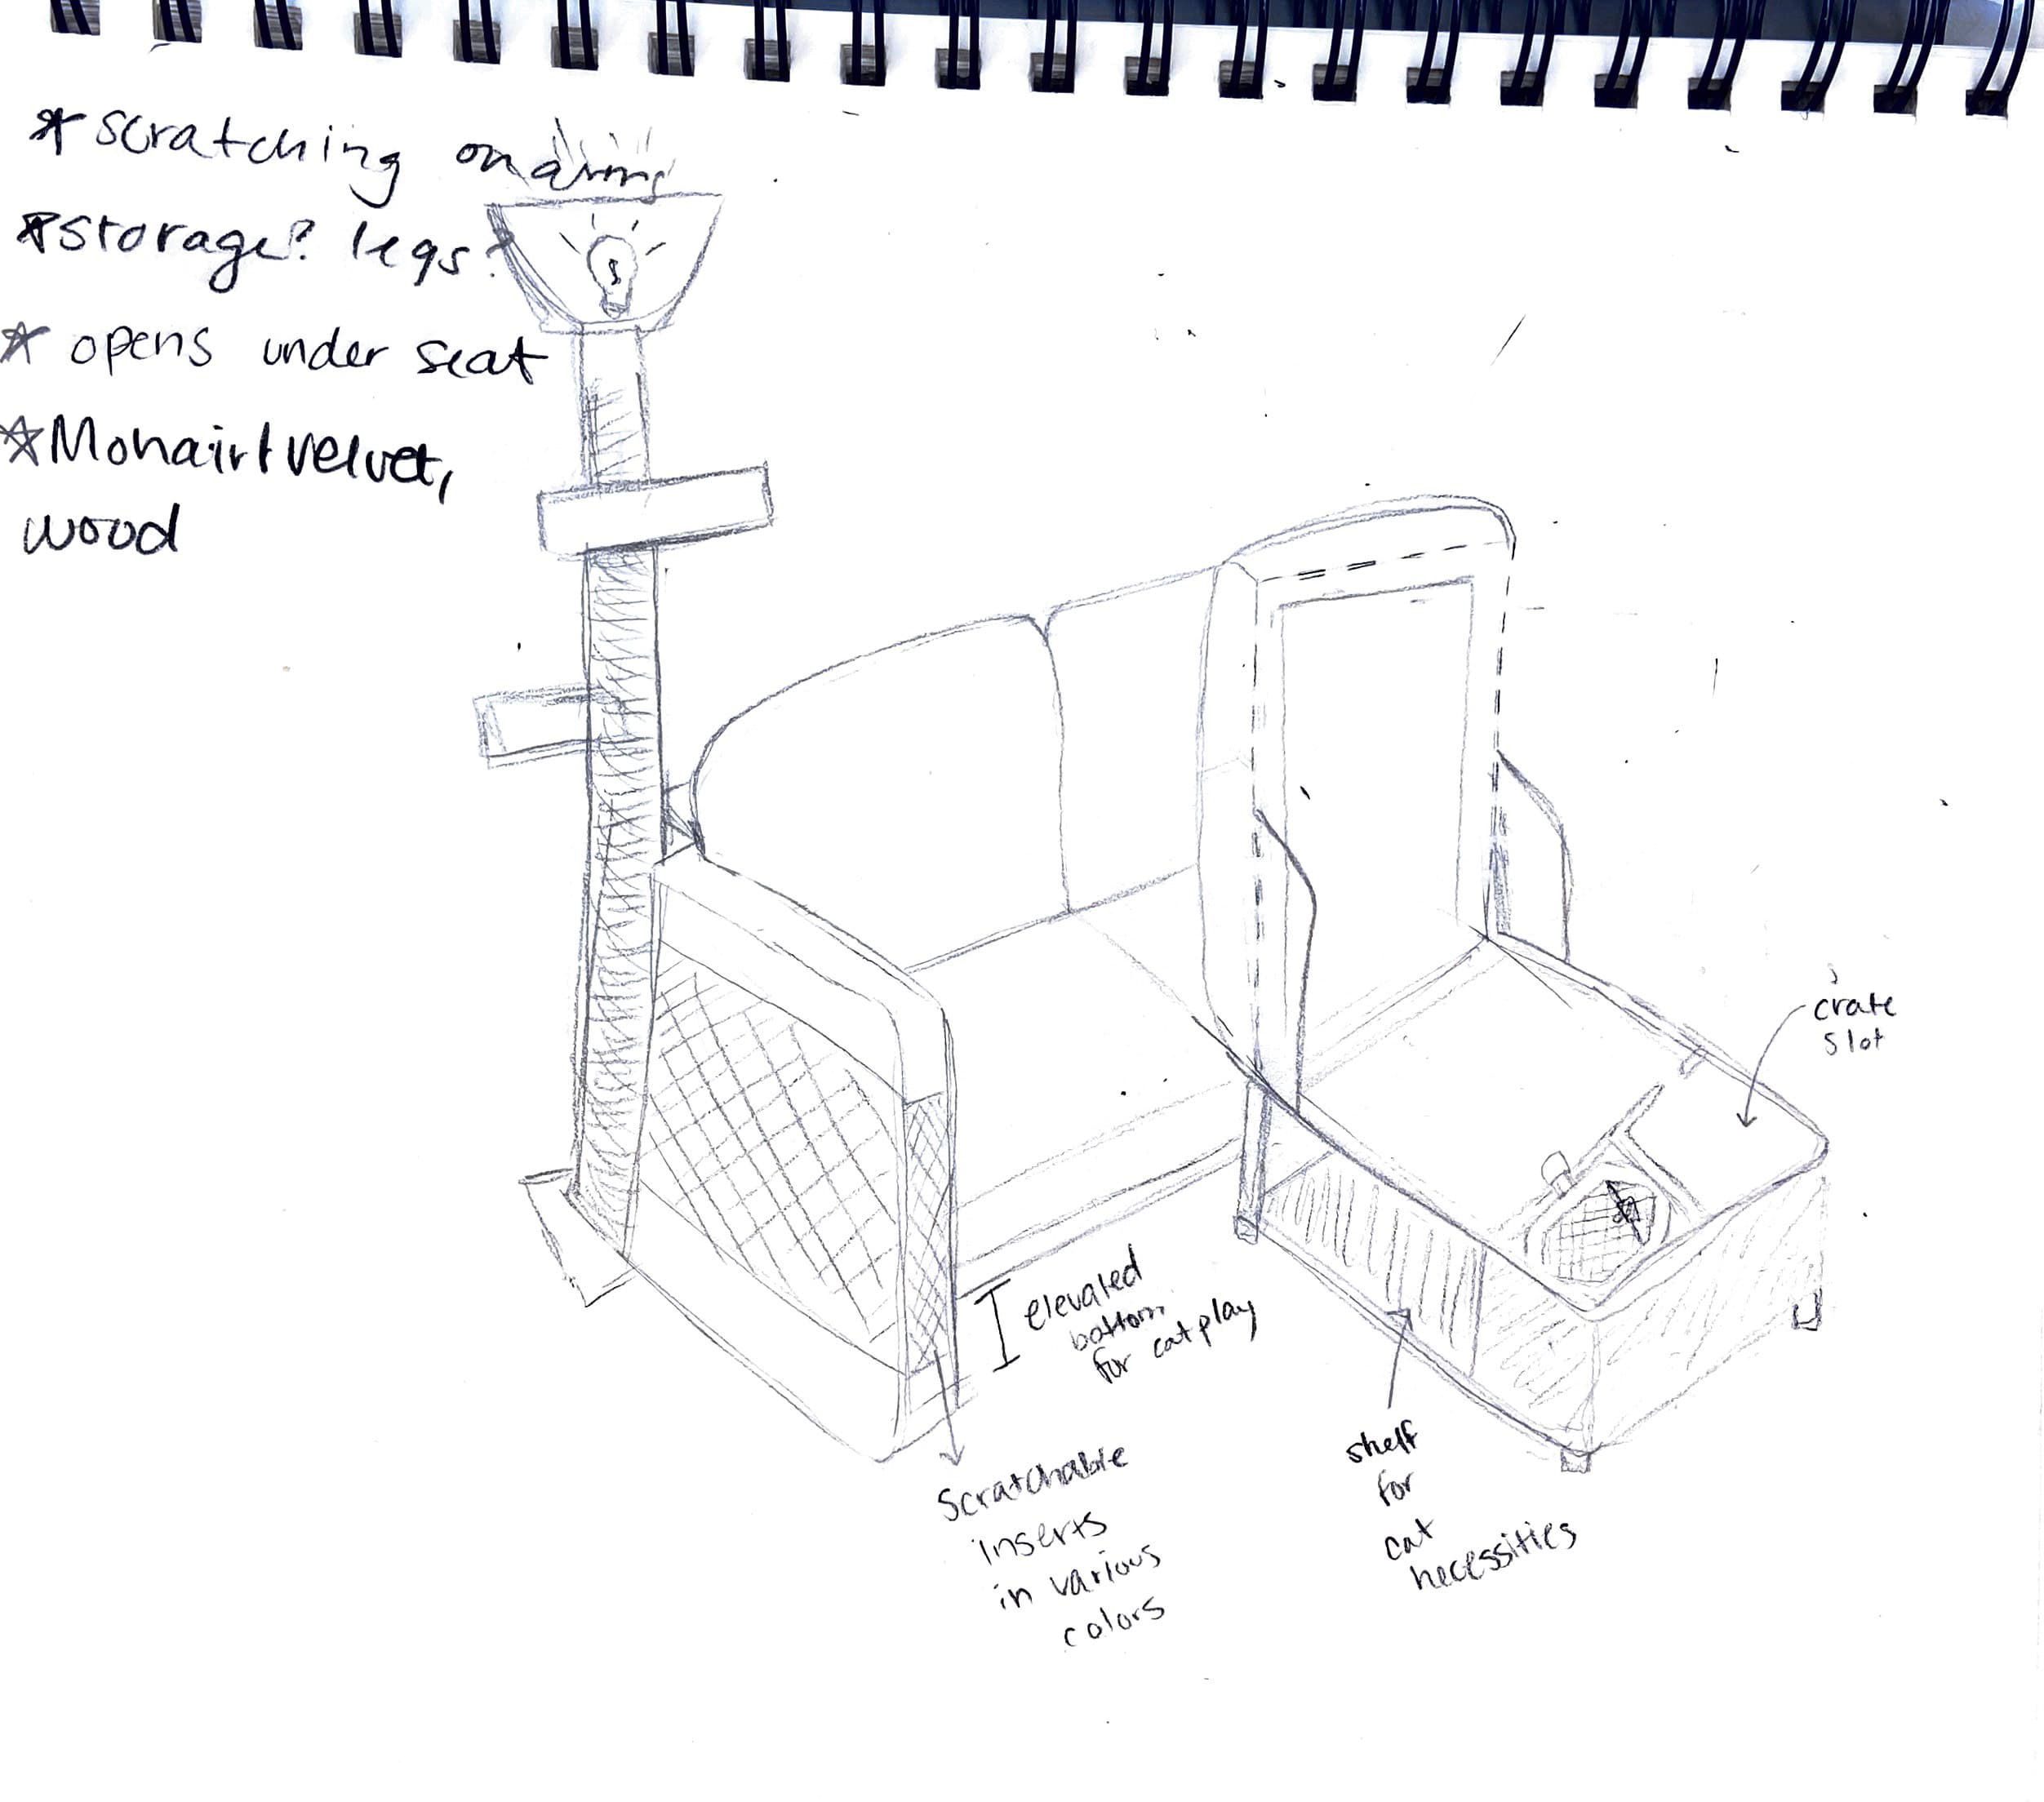 * scratching on arms
* storage? legs?
* opens under seat
* Mohair/velvet,
wood
crate
slot
elevated
bottom
for cat play
Scratchable
inserts
in various
colors
shelf
for
cat
necessities